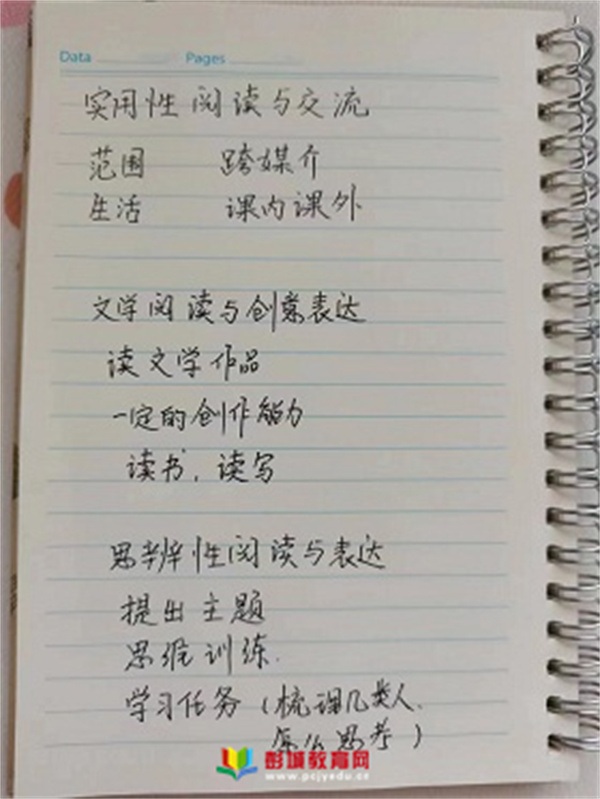 Data Pages
实用性阅读与交流
范围 跨媒介
生活 课内课外
文学阅读与创意表达
读文学作品
一定的创作能力
读书，读写
思辨性阅读与表达
提出主题
思维训练.
学习任务（梳理几类人.
怎么思考）
彭城教育网
www.pcjyedu.cc